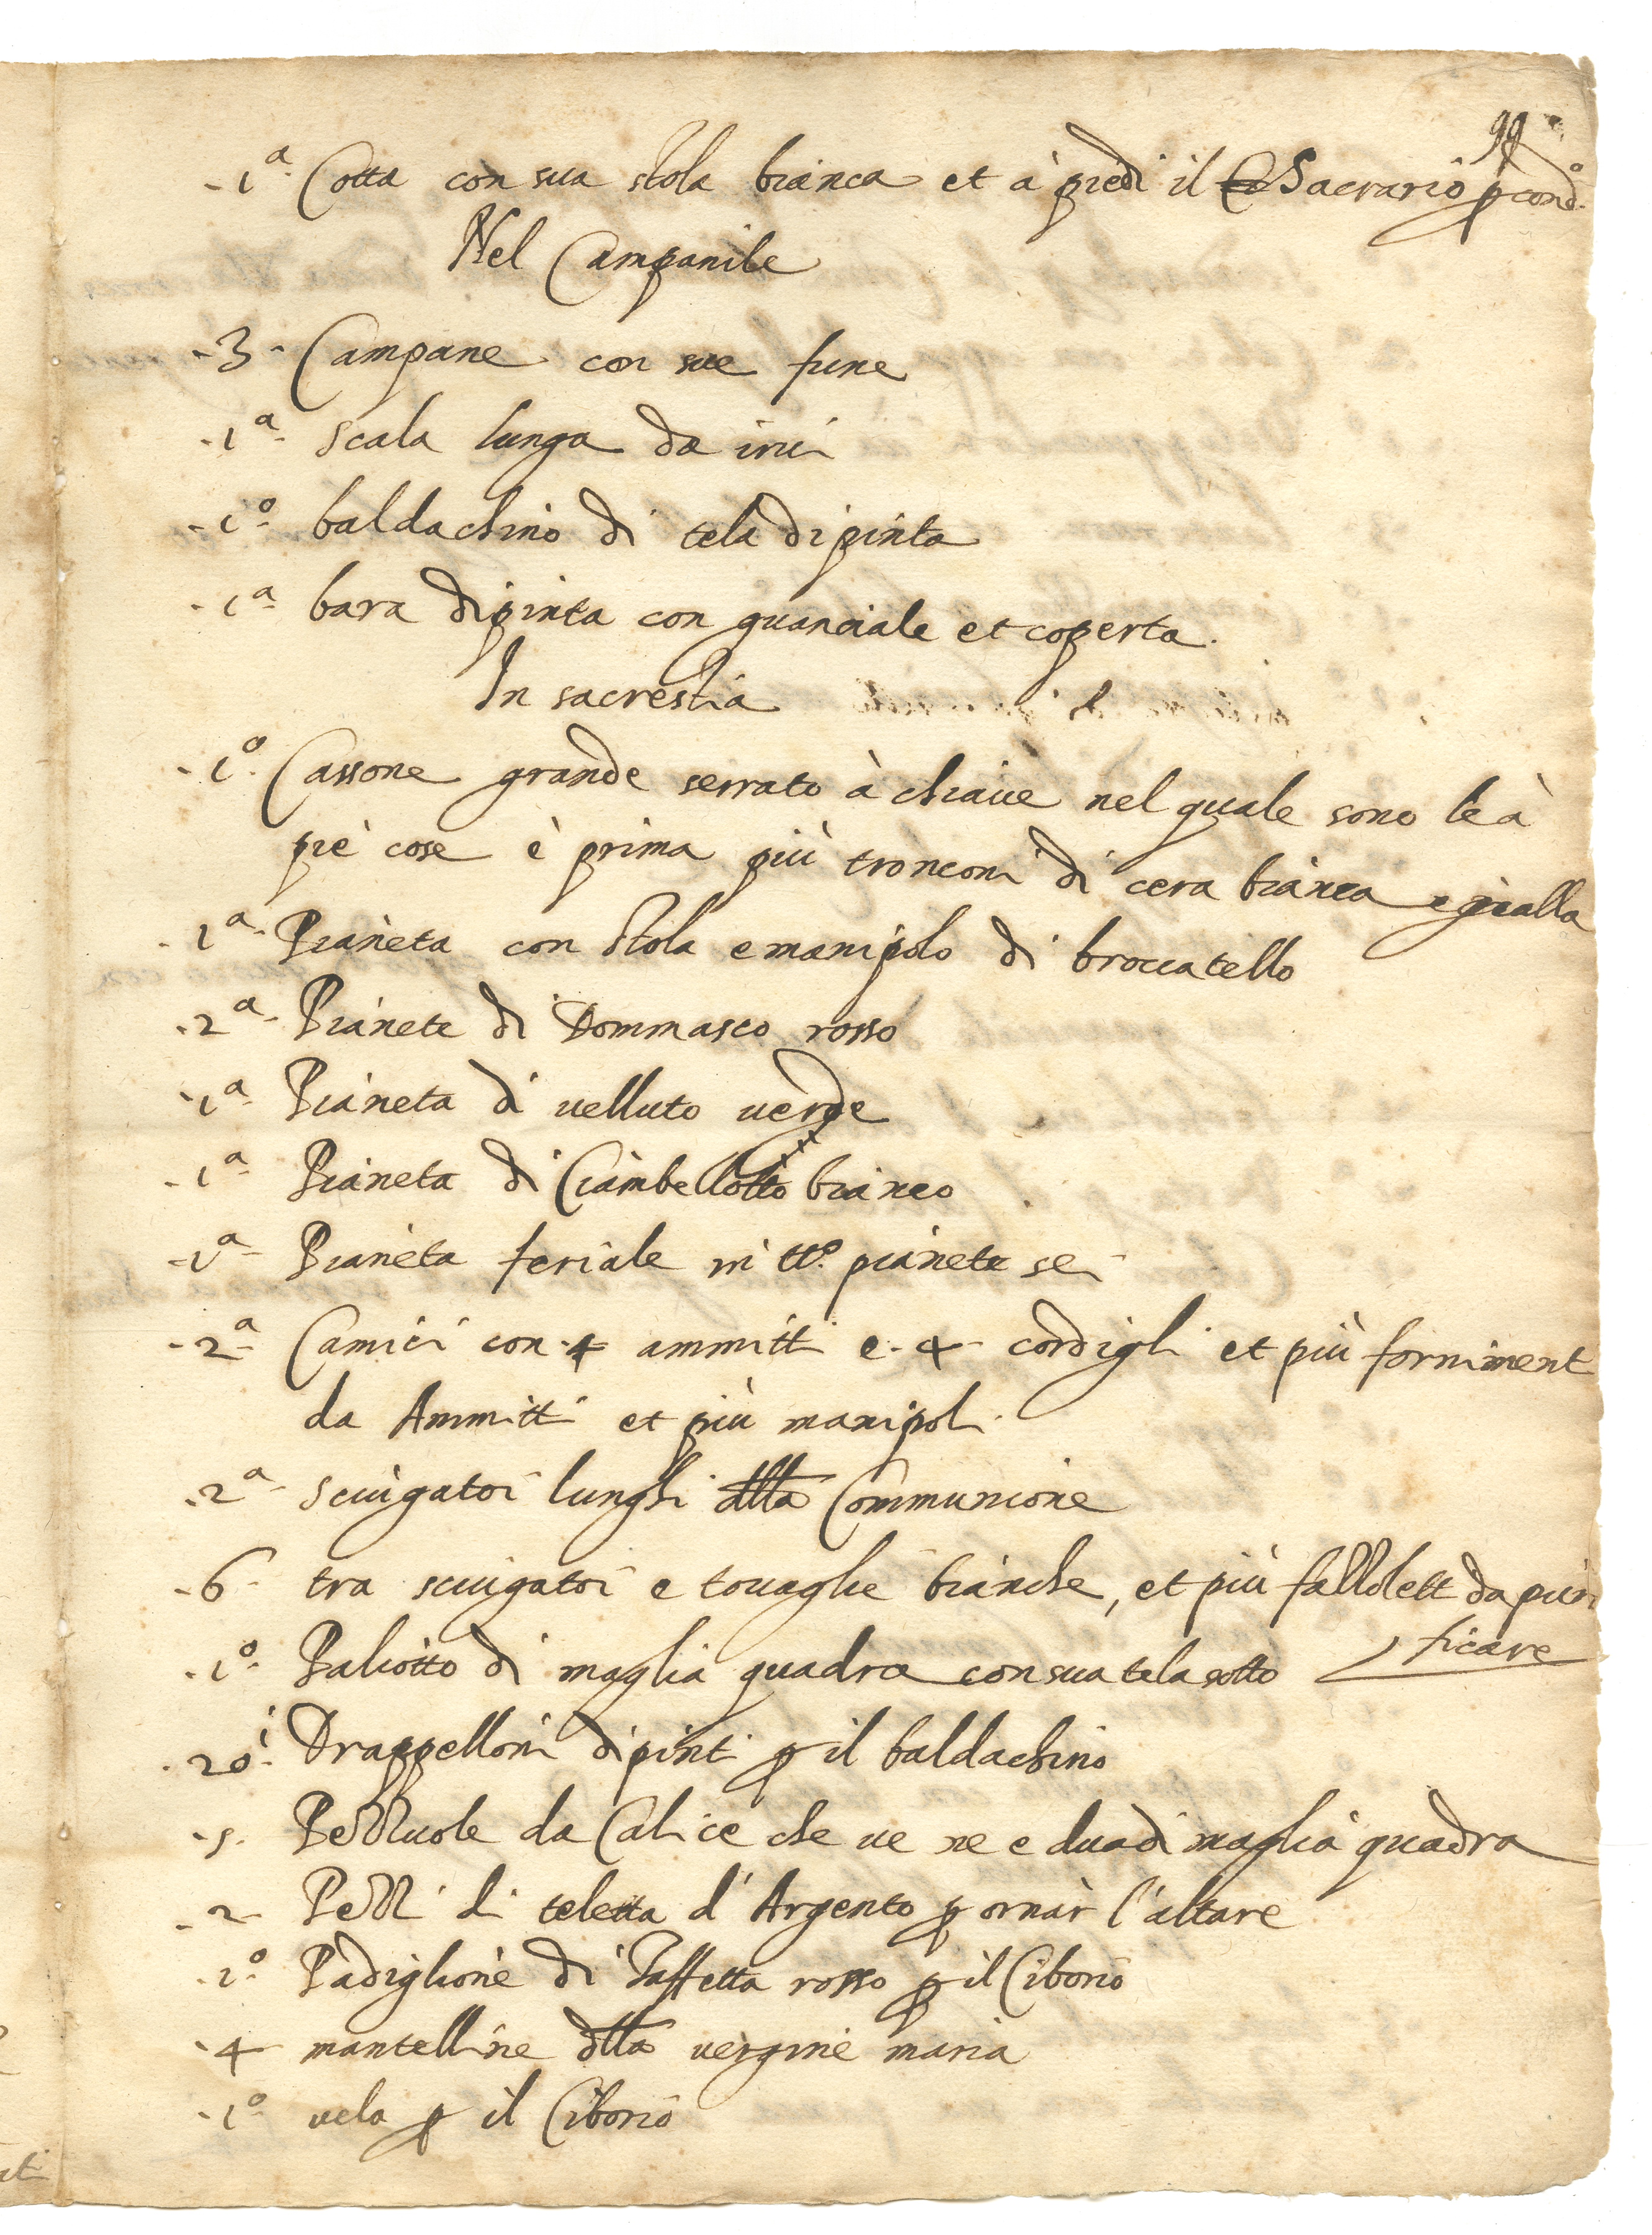 99
-1ª Cotta con sua stola bianca et à piedi il Sacrario
Nel Campanile
-3- Campane con sue fune
-1ª- scala lunga da ini
-1º- baldachino di tela dipinta
-1ª- bara dipinta con guanciale et coperta.
In sacrestia
-1º- Cassone grande serrato à chiave nel quale sono le à
piè cose è prima più tronconi di cera bianca e gialla
-1ª- Pianeta con stola e manipolo di broccatello
-2ª- Pianete di Dommasco rosso
-1ª- Pianeta di velluto verde
-1ª- Pianeta di Ciambellotto bianco
-1ª- Pianeta feriale in tt.º pianete sei
-2ª- Camici con 4 ammitti e-4- cordigli et più forniment
da Ammitti et più manipoli.
-2ª- sciugatoi lunghi dlla Communione
-6- tra sciugatoi e tovaglie bianche, et più da puri
ficare
-1º- Paliotto di maglia quadra con sua tela sotto
-20i- Drappelloni dipinti p il baldachino
-5- da Calice che ve ne e dua di maglia quadra
-2- di teletta d'Argento p ornar l'altare
-1º- Padiglione di Taffetta rosso p il Ciborio
-4- mantelline dlla vergine maria
-1º- velo p il Ciborio